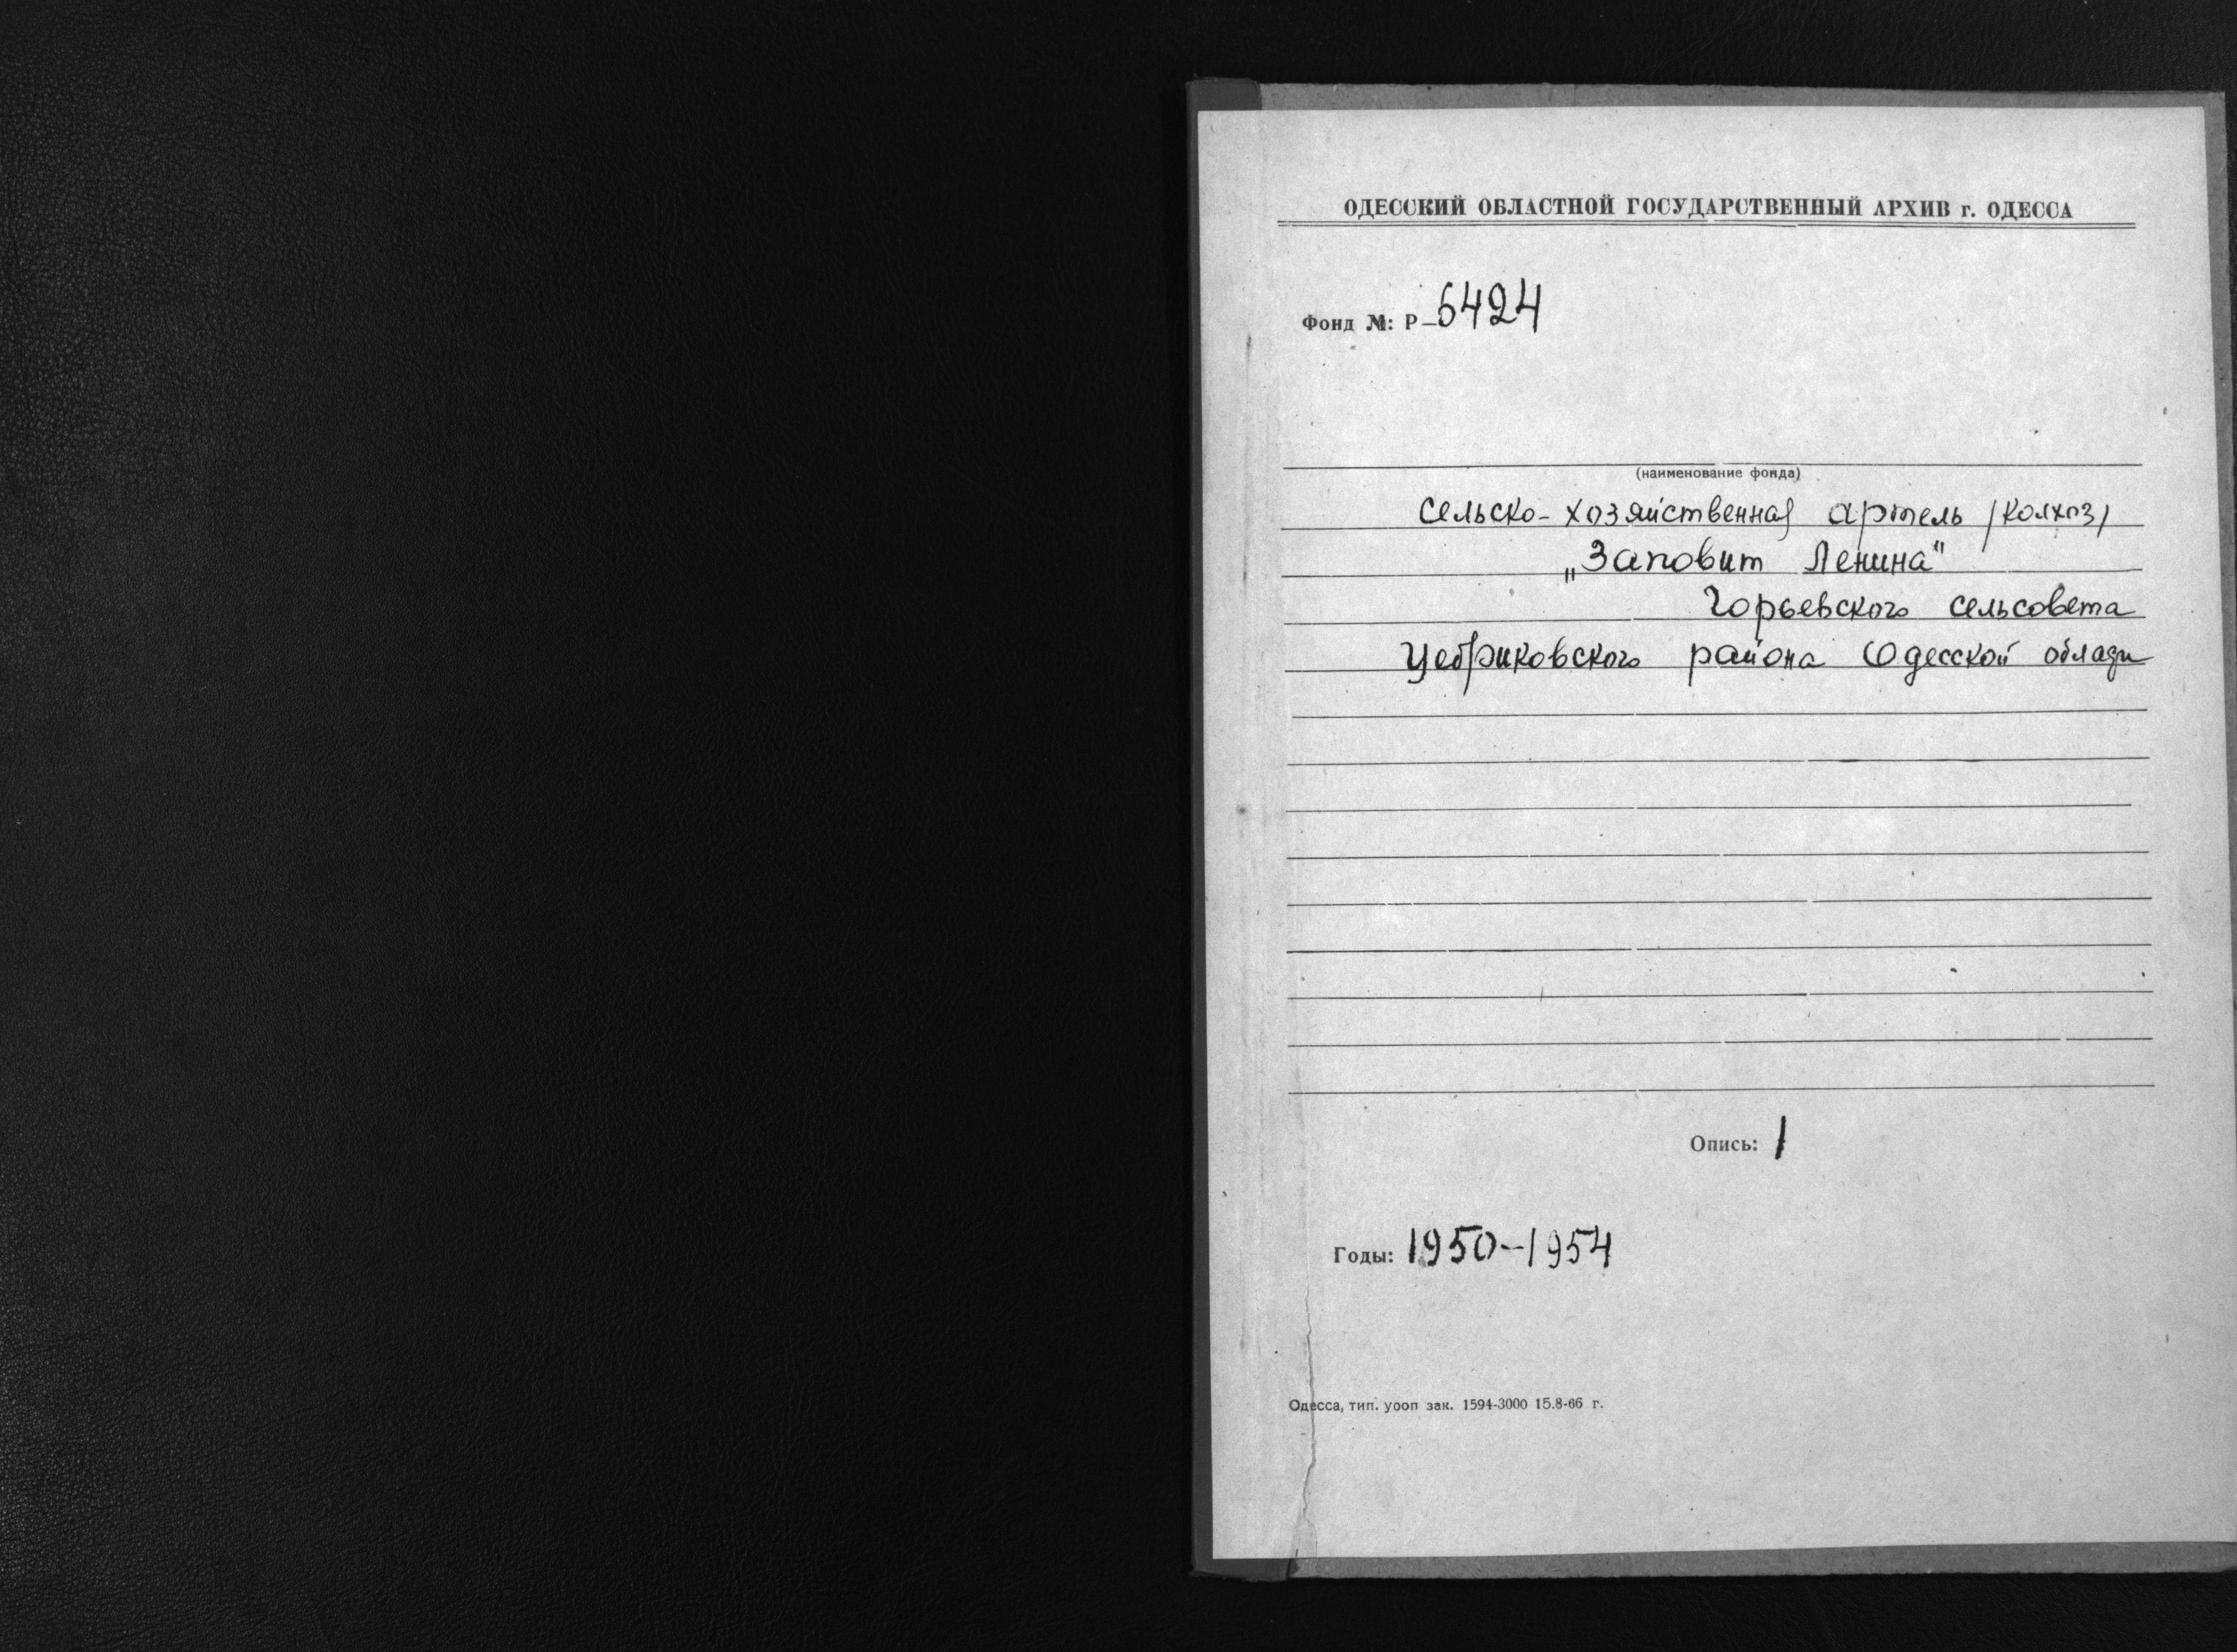 ОДЕССКИЙ ОБЛАСТНОЙ ГОСУДАРСТВЕННЫЙ АРХИВ г. ОДЕССА
Фонд №: Р-6424
(наименование фонда)
Сельско-хозяйственная артель /колхоз/
„Заповит Ленина"
Горьевского сельсовета
Цебриковского района Одесской
Опись: 1
Годы: 1950-1954
Одесса, тип. уооп зак. 1594-3000 15.8-66 г.